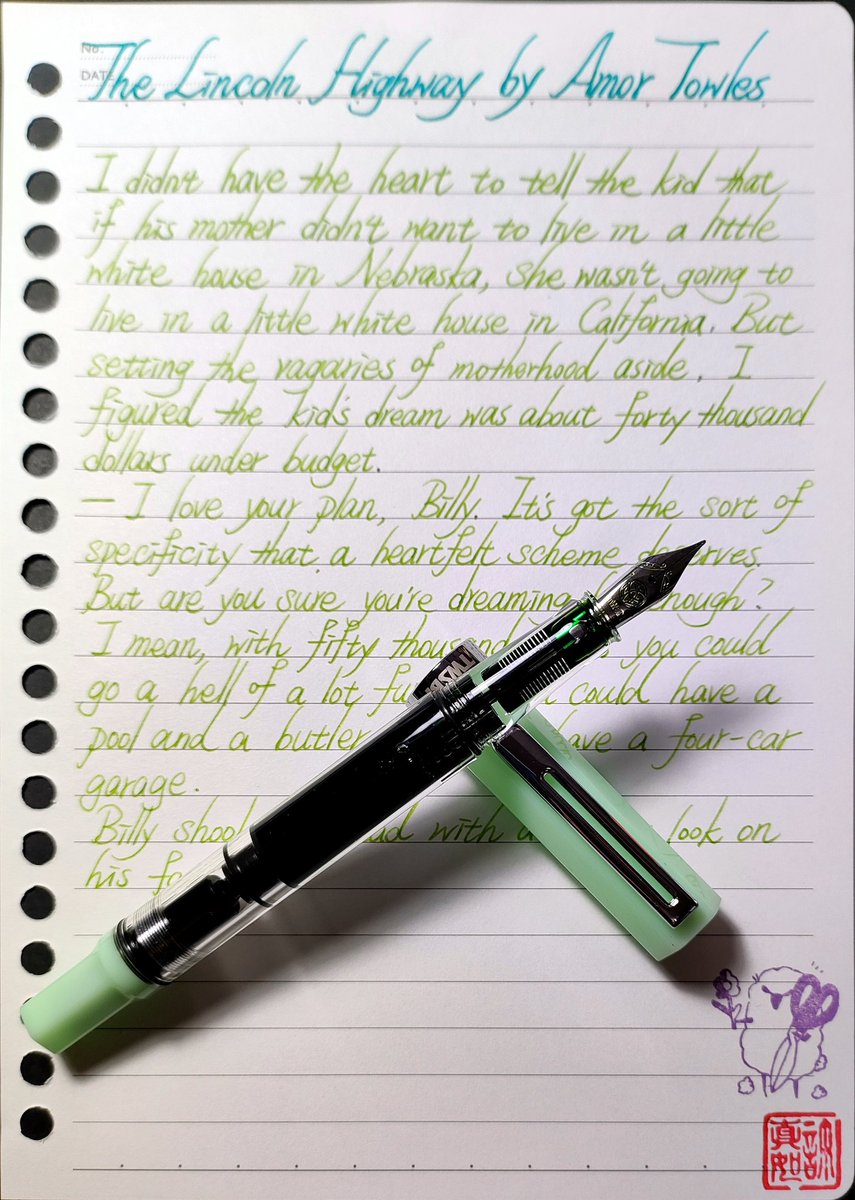 No.
DATE
The Lincoln Highway by Amor Towles
I didn't have the heart to tell the kid that
if his mother didn't want to live in a little
white house in Nebraska, she wasn't going to
live in a little white house in California. But
setting the vagaries of motherhood aside, I
figured the kid's dream was about forty thousand
dollars under budget.
— I love your plan, Billy. It's got the sort of
specificity that a heartfelt scheme deserves.
But are you sure you're dreaming enough?
I mean, with fifty thousand you could
go a hell of a lot could have a
pool and a butler have a four-car
garage.
Billy with look on
his
TWSBI